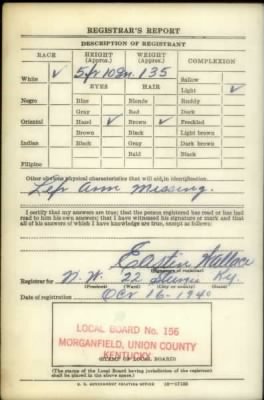 REGISTRAR'S REPORT
DESCRIPTION OF REGISTRANT
RACE HEIGHT (Approx.) WEIGHT (Approx.) COMPLEXION
White ✓ 5ft 10In. 135 Sallow
EYES HAIR Light ✓
Negro Blue Blonde Ruddy
Gray Red Dark
Oriental Hazel ✓ Brown ✓ Freckled
Brown Black Light brown
Indian Black Gray Dark brown
Bald Black
Filipino
Other obvious physical characteristics that will aid in identification.
Left Arm Missing.
I certify that my answers are true; that the person registered has read or has had
read to him his own answers; that I have witnessed his signature or mark and that
all of his answers of which I have knowledge are true, except as follows:
Wallace
(Signature of registrar)
Registrar for N.W. 22 Ky.
(Precinct) (Ward) (City or county) (State)
Date of registration Oct 16-1940
LOCAL BOARD No. 156
MORGANFIELD, UNION COUNTY
KENTUCKY
(STAMP OF LOCAL BOARD)
(The stamp of the Local Board having jurisdiction of the registrant
shall be placed in the above space.)
U. S. GOVERNMENT PRINTING OFFICE